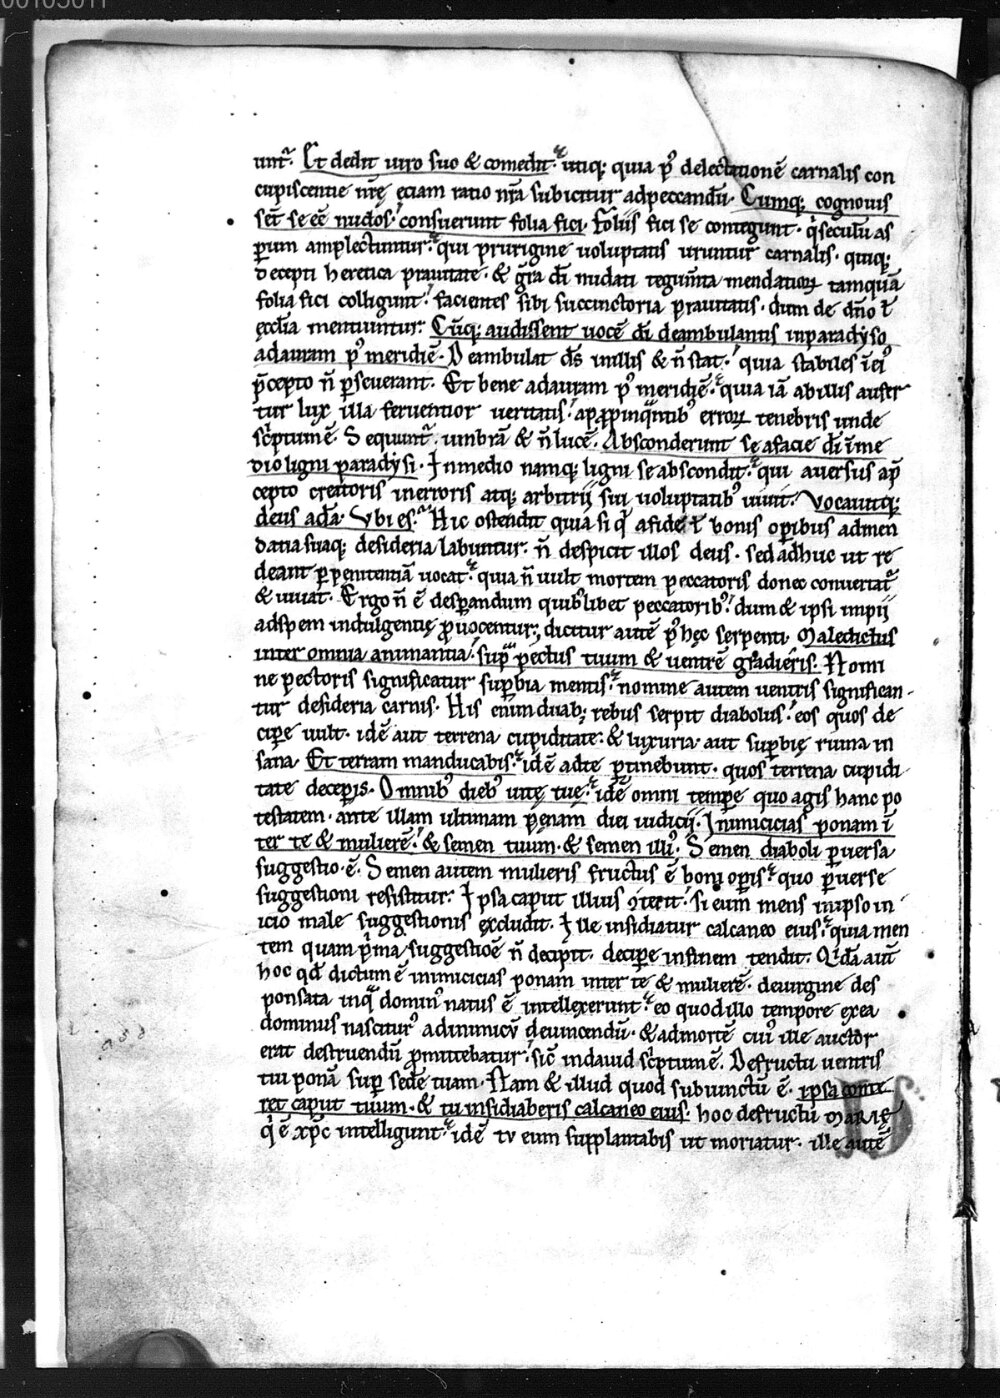 00103011
unt᷑. Et dedit uiro suo & comedit. utiq; quia ꝑ delectationē carnalis con
cupiscentie nr̄ę eciam ratio nr̄a subicitur adpeccandū. Cumq; cognouis
sent se eē nudos. consuerunt folia fici. Foliis fici se contegunt. q̇ sećulū as
ꝑum amplectuntur. qui prurigine uoluptatis uruntur carnalis. quiq;
decepti heretica prauitate. & gr̄a dī nudati tegumīta mendatioꝝ tamquā
folia fici colligunt. facientes sibi succinctoria prauitatis. dum de dn̄o ł
ęcclīa mentiuntur. Cūq; audissent uocē dī deambulantis inparadyso
adauram ꝑ meridiē. Deambulat ds̄ inillis & n̄ stat. quia stabiles ī ei᷒
p̄cepto n̄ ꝑseuerant. Et bene adauram ꝑ meridiē. quia iā abillis aufer
tur lux illa feruentior ueritatis. apꝓpinq̄ntib᷒ erroꝝ tenebris unde
sc̄ptum ē. Sequunt᷑ umbrā & n̄ lucē. Absconderunt se afacie dī ī me
dio ligni paradysi. Inmedio namq; ligni se abscondit. qui auersus ap̄
cepto creatoris inerroris atq; arbitrii sui uoluptatib᷒ uiuit. Vocauitq;
deus adā. Vbi es. Hic ostendit quia si q̇ afide ł bonis oꝑibus admen
datia suaq; desideria labuntur. n̄ despicit illos deus. sed adhuc ut re
deant ꝑ penitentiā uocat. quia n̄ uult mortem peccatoris donec conuertat᷑
& uiuat. Ergo n̄ ē desꝑandum quib᷒libet peccatorib᷒. dum & ipsi impii
adspem indulgentię ꝓuocentur; dicitur autē p᷒ hęc serpenti. Maledictus
inter omnia animantia. supra pectus tuum & uentrē gradieris. Nomi
ne pectoris significatur suꝑbia mentis. nomine autem uentris significan-
tur desideria carnis. His enim duab; rebus serpit diabolus. eos quos de
ciꝑe uult. idē aut terrena cupiditate. & luxuria. aut suꝑbię ruina in
sana. Et terram manducabis. idē adte ꝑtinebunt. quos terrena cupidi
tate deceperis. Omnib᷒ dieb᷒ uitę tuę. idē omni tempe quo agis hanc po
testatem. ante illam ultimam pęnam diei iudicii. Inimicicias ponam ī
ter te & mulierē. & semen tuum. & semen illi᷒. Semen diaboli ꝑuersa
suggestio. ē. Semen autem mulieris fructus ē boni oꝑis. quo ꝑuerse
suggestioni resistitur. Ipsa caput illius ꝯterit. si eum mens inipso in
icio male suggestionis excludit. Ille insidiatur calcaneo eius. quia men
tem quam p̄ma suggestiōe n̄ decipit. deciꝑe infinem tendit. Qıdā aut̄
hoc qd̄ dictum ē inimicicias ponam inter te & mulierē. deuirgine des
ponsata inq̄ domin᷒ natus ē intellexerunt. eo quod illo tempore exea
dominus nascitur᷒ adinimicū deuincendū. & admortē cui᷒ ille auctor
erat destruendū ꝓmittebatur. sic̄ indauid sc̄ptum ē. Defructu uentris
tui ponā super sedē tuam. Nam & illud quod subiunctū ē. ipsa conte
ret caput tuum. & tu insidiaberis calcaneo eius. hoc defructu MARIę
q̇ ē xp̄c intelligunt. idē tu eum supplantabis ut moriatur. ille autē